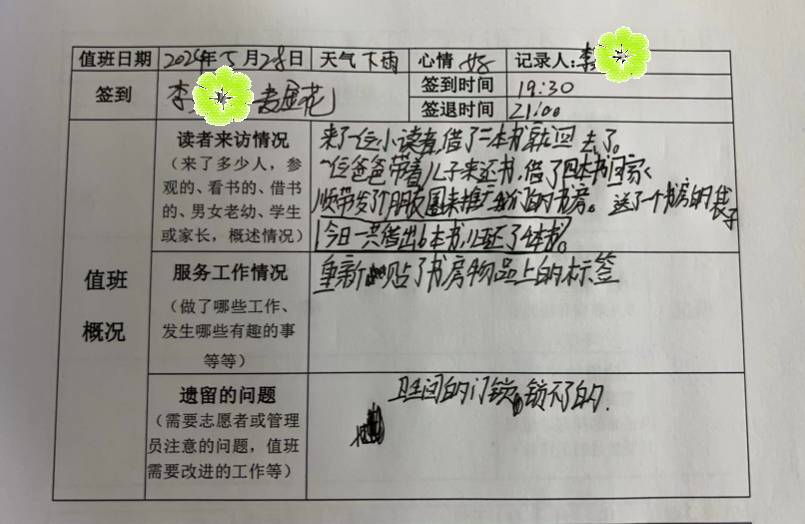 值班日期 2024年5月28日 天气 下雨 心情 好 记录人:李
签到 李 金花 签到时间 19:30
签退时间 21:00
值班概况
读者来访情况
(来了多少人,参
观的、看书的、借书
的、男女老幼、学生
或家长,概述情况)
来了一位小读者,借了二本书就回去了。
一位爸爸带着儿子来还书,借了四本书回家,
顺带发了个朋友圈来推广我们的书房。送了一个书房的袋子
今日一共借出6本书,还了4本书。
服务工作情况
(做了哪些工作、
发生哪些有趣的事
等等)
重新贴了书房物品上的标签
遗留的问题
(需要志愿者或管理
员注意的问题,值班
需要改进的工作等)
卫生间的门锁锁不了的.